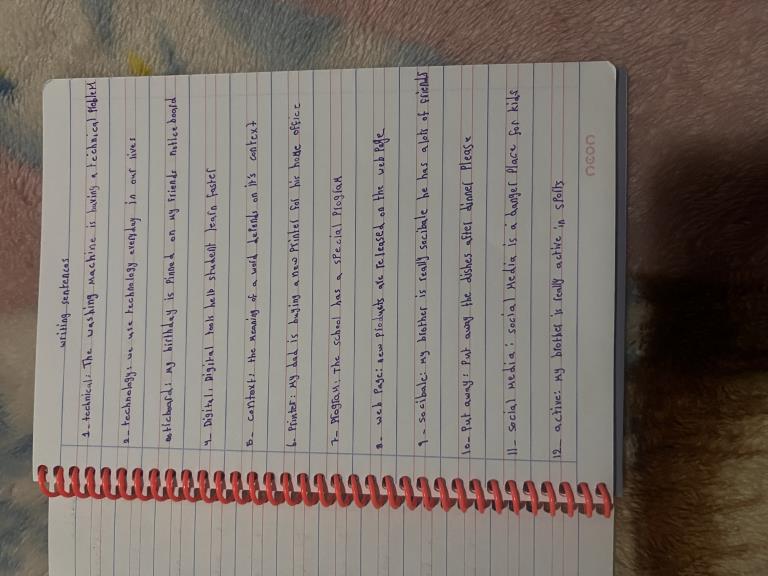 writing sentences
1_ technical: The washing machine is having a technical Problem
2_ technology: we use technology everyday in our lives
noticeboard: my birthday is Pinned on my friends noticeboard
4_ Digital: Digital tools help student learn faster
5_ context: the meaning of a word depends on it's context
6_ Printer: my dad is buying a new Printer for his home office
7_ Program: The school has a special Program
8_ web Page: new Products are released on the web Page
9_ socibale: my brother is really socibale he has alots of friends
10_ Put away: Put away the dishes after dinner Please
11_ social media: social media is a danger Place for kids
12_ active: my brother is really active in sports
neon